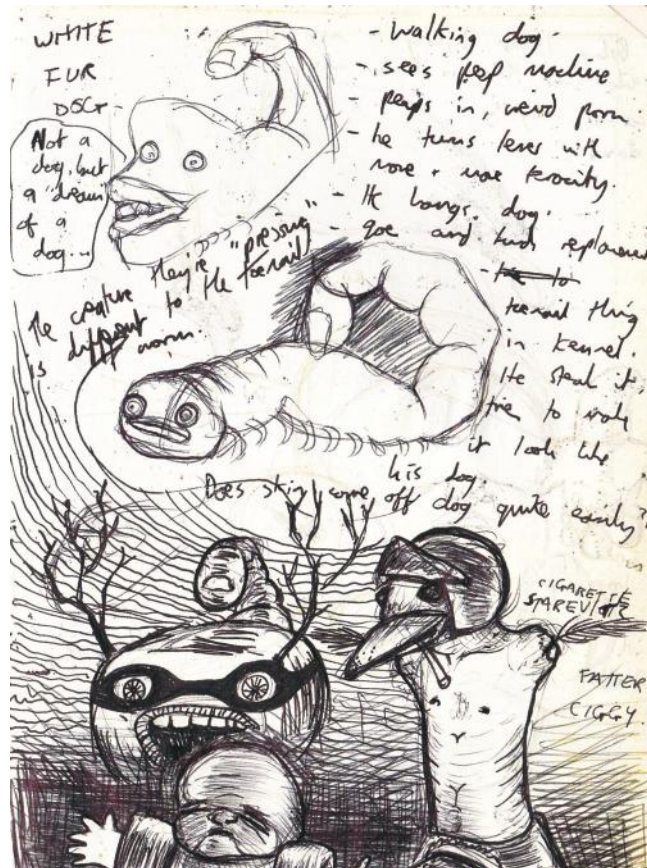 WHITE
FUR
DOG -
Not a
dog, but
a dream
of a
dog...
- Walking dog.
- sees peep machine
- peeps in, weird porn.
- he turns lever with
more & more ferocity.
- He hangs dog.
- goe and finds replacement
toenail thing
in kennel.
He steal it,
tries to make
it look like
his dog.
they're "pressing"
The creature
to the toenail
is different
worm.
Does skin come off dog quite easily?
CIGARETTE
FATTER
CIGGY.